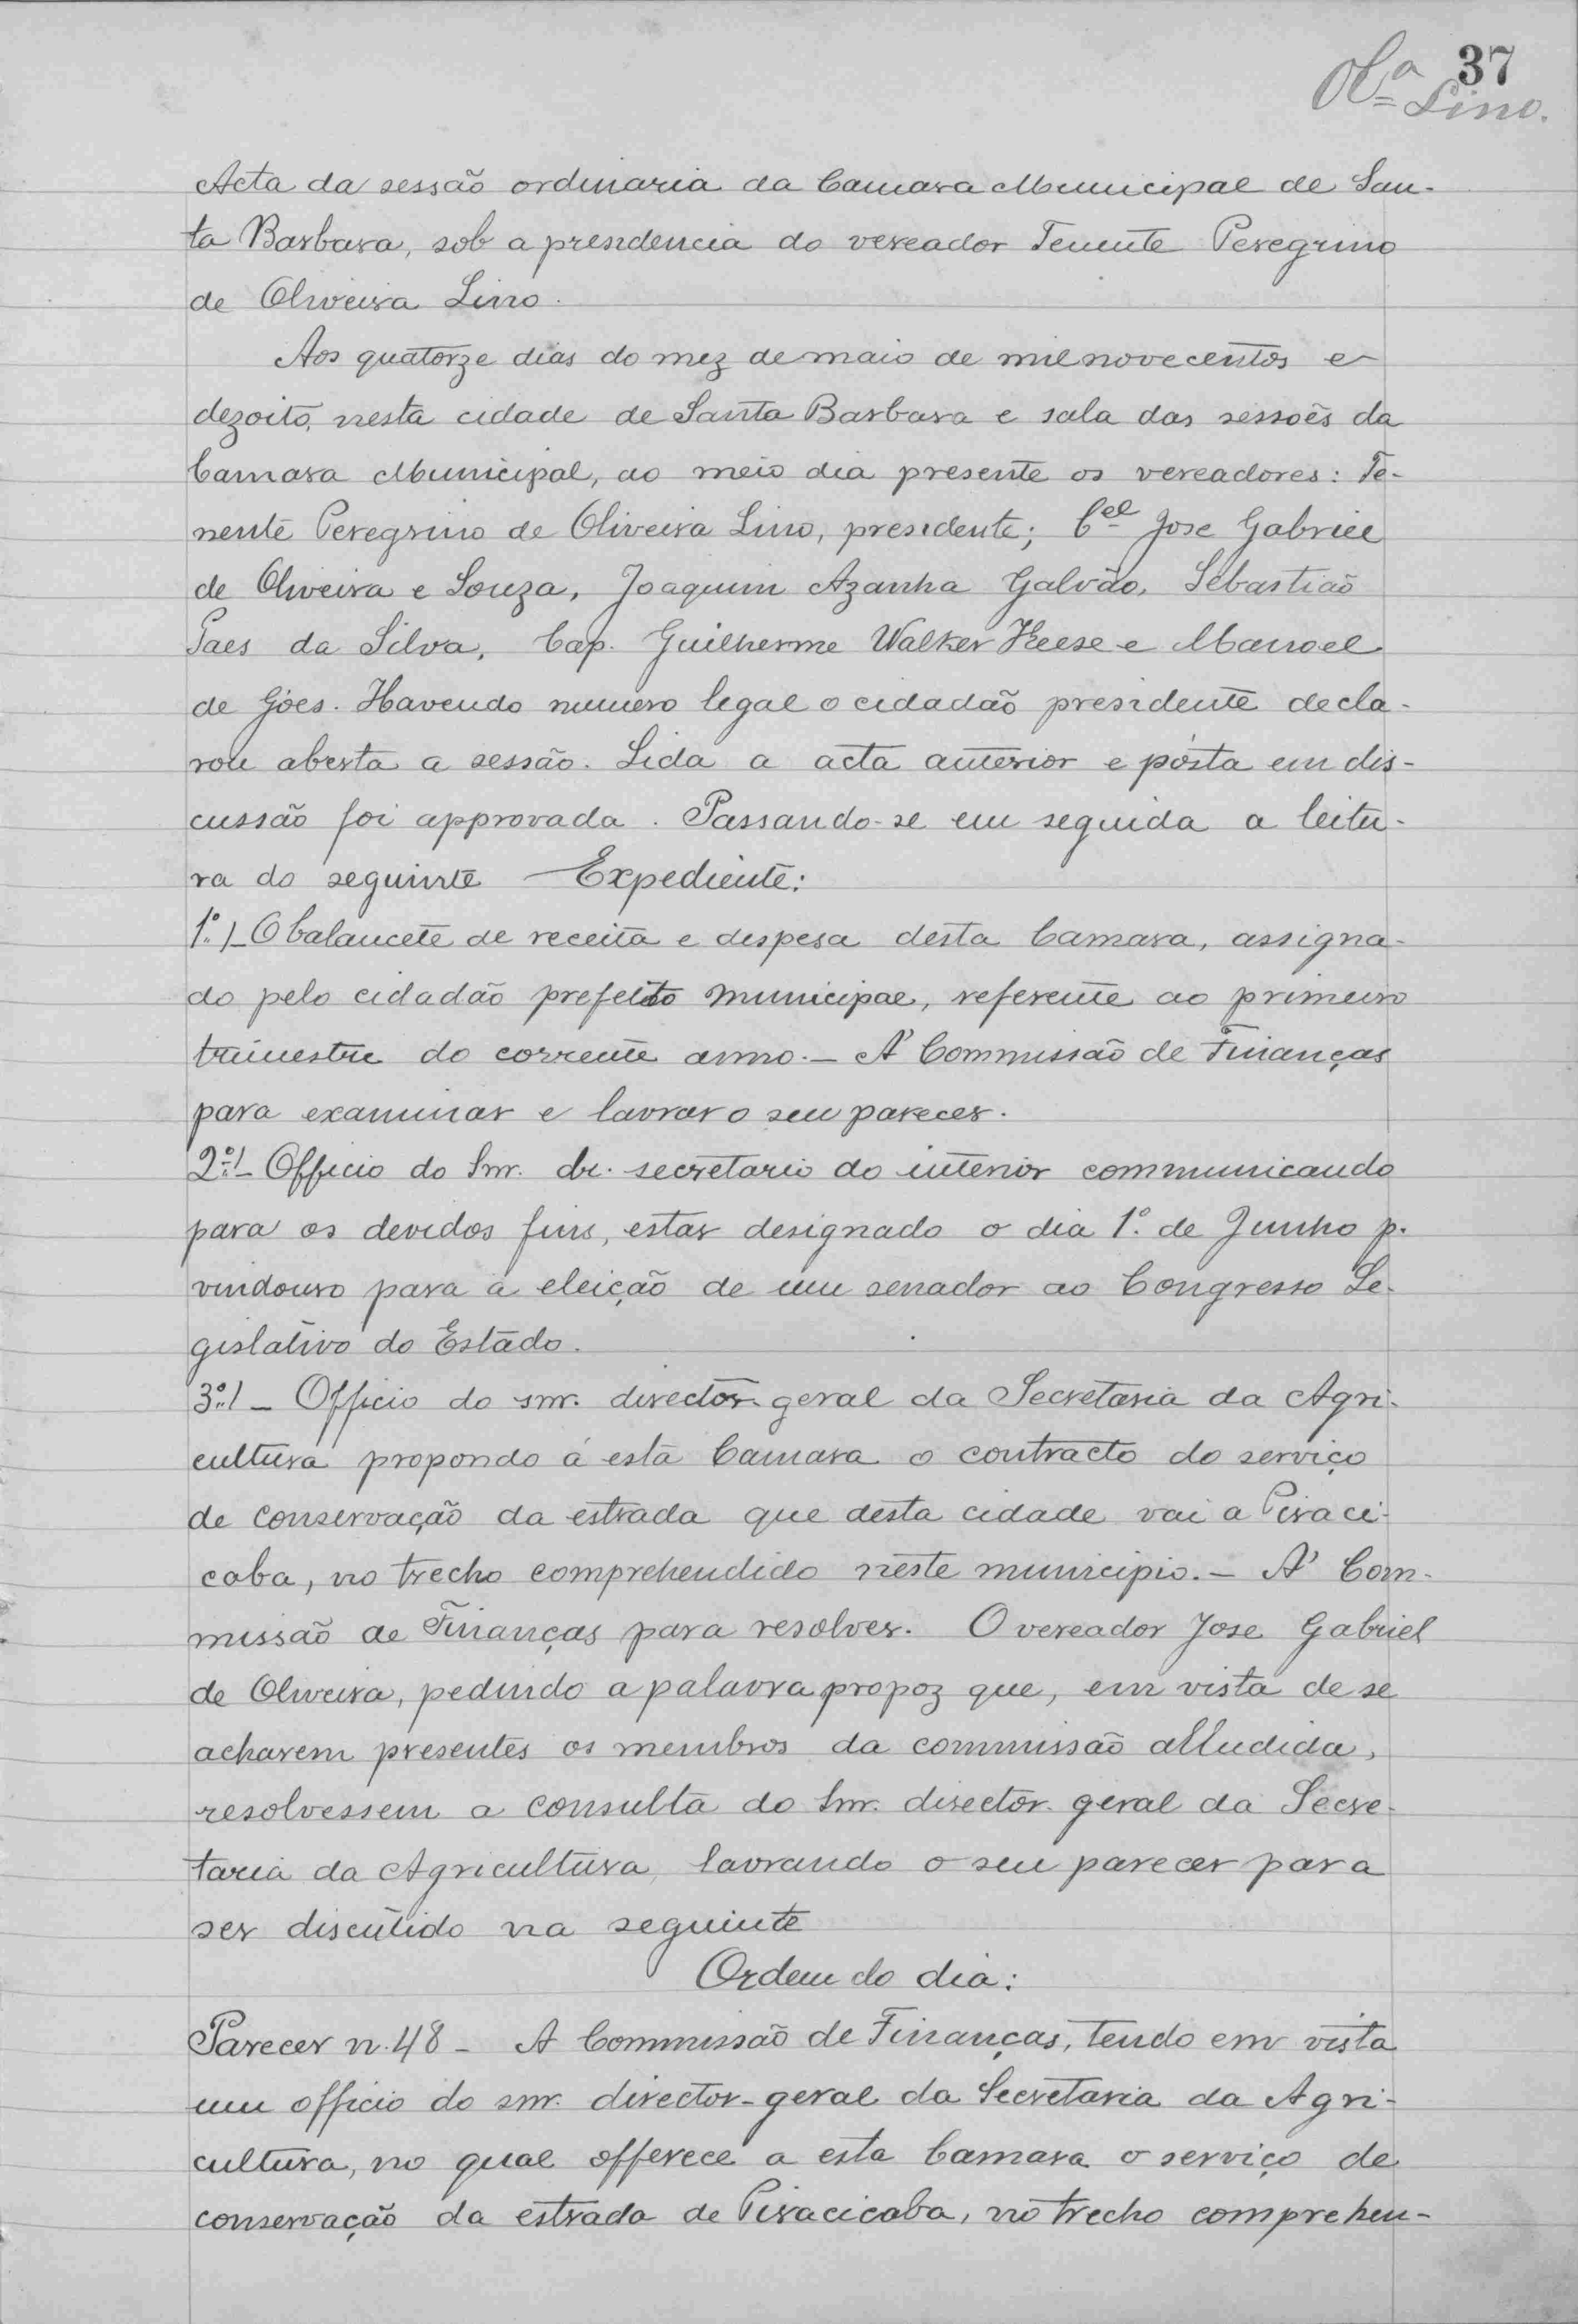 37
Olª Lino.
Acta da sessão ordinaria da Camara Municipal de San-
ta Barbara, sob a presidencia do vereador Tenente Peregrino
de Oliveira Lino.
Aos quatorze dias do mez de maio de mil novecentos e
dezoito, nesta cidade de Santa Barbara e sala das sessoẽs da
Camara Municipal, ao meio dia presente os vereadores: Te-
nente Peregrino de Oliveira Lino, presidente; Cel Jose Gabriel
de Oliveira e Souza, Joaquim Azanha Galvão, Sebastião
Paes da Silva, Cap. Guilherme Walker Keese e Manoel
de Góes. Havendo numero legal o cidadão presidente decla-
rou aberta a sessão. Lida a acta anterior e pósta em dis-
cussão foi approvada. Passando-se em seguida a leitu-
ra do seguinte Expediente:
1º.)_ O balancete de receita e despesa desta Camara, assigna-
do pelo cidadão prefeito municipal, referente ao primeiro
trimestre do corrente anno. _ A' Commissão de Finanças
para examinar e lavrar o seu parecer.
2º.)_ Officio do Snr. dr. secretario do interior communicando
para os devidos fins, estar designado o dia 1º. de Junho p.
vindouro para a eleição de um senador ao Congresso Le-
gislativo do Estado.
3º.) _ Officio do snr. director geral da Secretaria da Agri-
cultura propondo á esta Camara o contracto do serviço
de conservação da estrada que desta cidade vai a Piraci-
caba, no trecho comprehendido neste municipio. _ A' Com-
missão de Finanças para resolver. O vereador Jose Gabriel
de Oliveira, pedindo a palavra propoz que, em vista de se
acharem presentes os membros da commissão alludida,
resolvessem a consulta do Snr. director geral da Secre-
taria da Agricultura, lavrando o seu parecer para
ser discutido na seguinte
Ordem do dia:
Parecer n. 48 - A Commissão de Finanças, tendo em vista
um officio do snr. director-geral da Secretaria da Agri-
cultura, no qual offerece a esta Camara o serviço de
conservação da estrada de Piracicaba, no trecho comprehen-